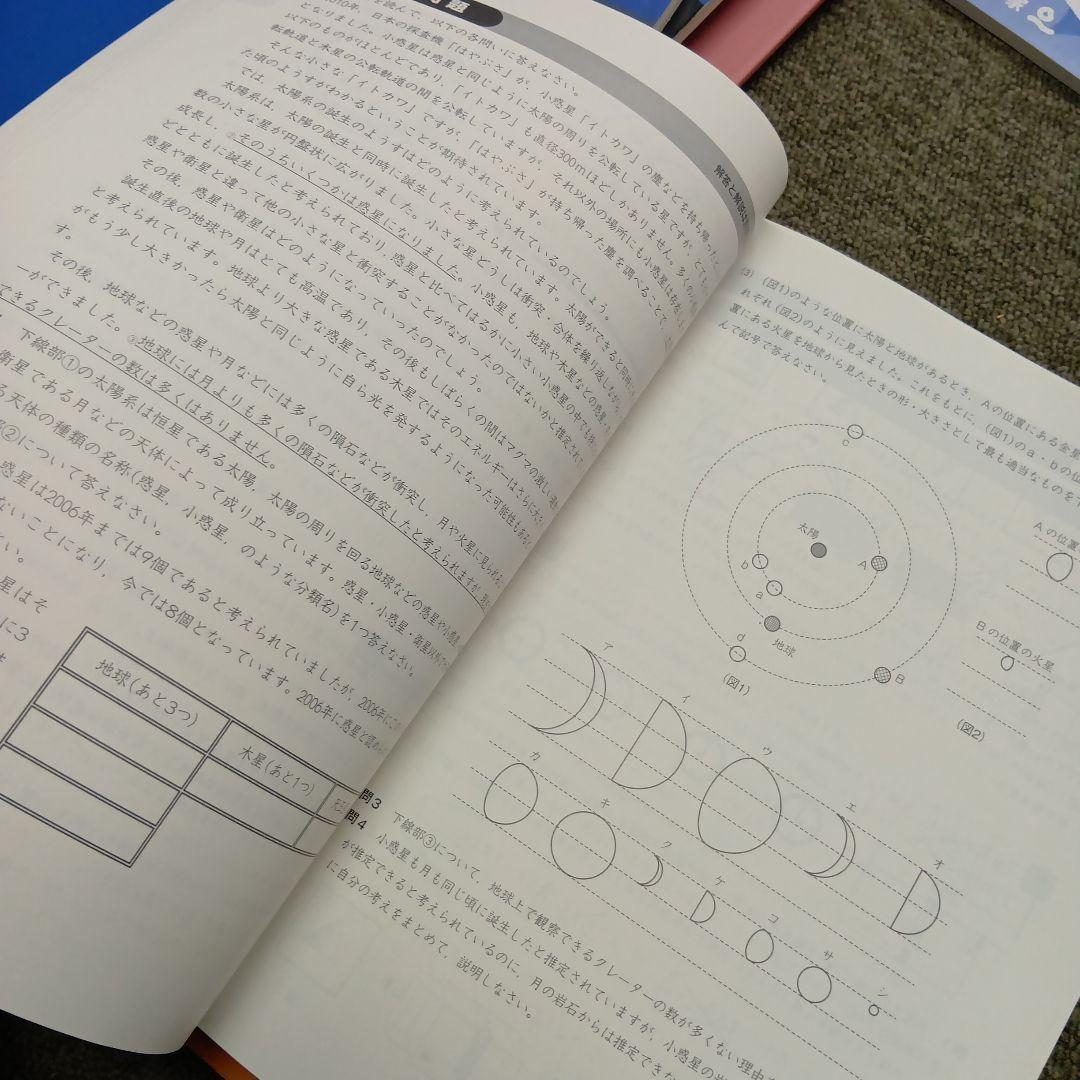 を読んで，以下の各問いに答えなさい。
2010年，日本の探査機「はやぶさ」が，小惑星「イトカワ」の塵などを持ち帰っ
となりました。小惑星は惑星と同じように太陽の周りを公転している星ですが，
以下のものがほとんどであり，「イトカワ」も直径300mほどしかありません。多くの
転軌道と木星の公転軌道の間を公転していますが，それ以外の場所にも小惑星は存在
そんな小さな「イトカワ」ですが，「はやぶさ」が持ち帰った塵を調べることで，
た頃のようすがわかるということが期待されています。
では，太陽系の誕生のようすはどのように考えられているのでしょう。
太陽系は，太陽の誕生と同時に誕生したと考えられています。太陽ができると同時に
数の小さな星が円盤状に広がりました。小さな星どうしは衝突，合体を繰り返しながら
成長し，②そのうちいくつかは惑星になりました。小惑星も，地球や木星などの惑星，
どとともに誕生したと考えられており，惑星と比べてはるかに小さい小惑星の中でも
惑星や衛星と違って他の小さな星と衝突することがなかったのではないかと推定されて
その後，惑星や衛星はどのようになっていったのでしょう。
誕生直後の地球や月はとても高温であり，その後もしばらくの間はマグマの激しい
と考えられています。地球より大きな惑星である木星ではそのエネルギーはさらに大き
がもう少し大きかったら太陽と同じように自ら光を発するようになった可能性もある
す。
その後，地球などの惑星や月などには多くの隕石などが衝突し，月や火星に見られる
ーができました。③地球には月よりも多くの隕石などが衝突したと考えられますが，
できるクレーターの数は多くはありません。
下線部①の太陽系は恒星である太陽，太陽の周りを回る地球などの惑星や小惑星
衛星である月などの天体によって成り立っています。惑星・小惑星・衛星以外
る天体の種類の名称(惑星，小惑星，のような分類名)を1つ答えなさい。
部②について答えなさい。
惑星は2006年までは9個であると考えられていましたが，2006年に
ないことになり，今では8個となっています。2006年に惑星と認め
さい。
星はそ
に3
地球(あと3つ)
木星(あと1つ)
解答と解説は
(3) (図1)のような位置に太陽と地球があるとき，Aの位置にある金星
れぞれ(図2)のように見えました。これをもとに，(図1)のa・bの位
置にある火星を地球から見たときの形・大きさとして最も適当なものを
んで記号で答えなさい。
c
太陽
A
b
a
d
地球
B
(図1)
Aの位置
Bの位置の火星
(図2)
ア
イ
ウ
エ
オ
カ
キ
ク
ケ
コ
サ
シ
問3 下線部③について，地球上で観察できるクレーターの数が多くない理由
問4 小惑星も月も同じ頃に誕生したと推定されていますが，小惑星の岩
が推定できると考えられているのに，月の岩石からは推定できな
に自分の考えをまとめて，説明しなさい。